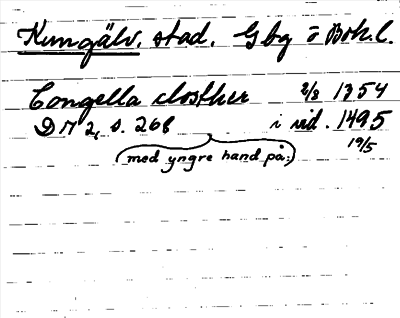 Kungälv, stad. Gbg o Boh. l.
Congella closther 2/8 1354
D N 2, s. 268 i vid. 1495
19/5
(med yngre hand på:)